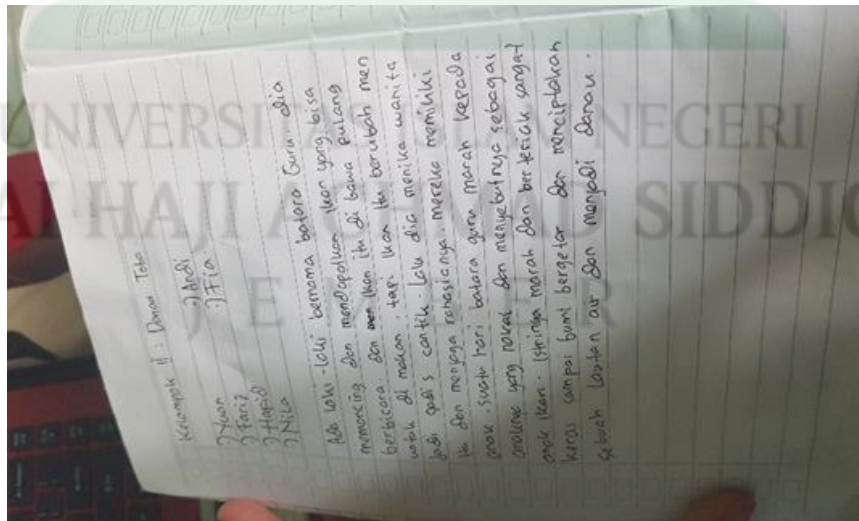 Kelompok II : Danau Toba.
-) Yuan
-) Andi
-) Fariz
-) Fia
-) Hapid
-) Nila
Ada laki-laki bernama batara Guru. dia
memancing dan mendapatkan ikan yang bisa
berbicara. dan ikan itu di bawa pulang
untuk di makan. tapi ikan itu berubah men
jadi gadis cantik. lalu dia menika wanita
itu dan menjaga rahasianya. mereka memiliki
anak suatu hari batara guru marah kepada
anaknya yang nakal dan menyebutnya sebagai
anak ikan. Istrinya marah dan berteriak sangat
keras sampai bumi bergetar dan menciptakan
sebuah lautan air dan menjadi danau.
UNIVERSITAS ISLAM NEGERI
HAJI ACHMAD SIDDIQ
JEMBER